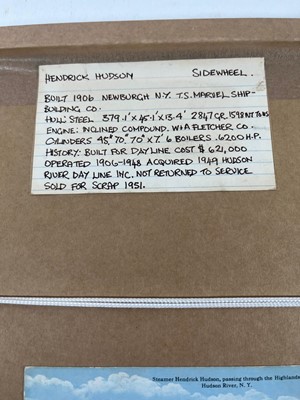 HENDRICK HUDSON SIDEWHEEL.
BUILT 1906 NEWBURGH N.Y. T.S. MARVEL SHIP-
BUILDING CO.
HULL: STEEL 379.1' X 45.1' X 13.4' 2847 GR. 1598 NT. TONS
ENGINE: INCLINED COMPOUND. W&A FLETCHER CO.
CYLINDERS 45" 70" 70" X 7' 6 BOILERS. 6200 H.P.
HISTORY: BUILT FOR DAY LINE COST $621,000
OPERATED 1906-1948 ACQUIRED 1949 HUDSON
RIVER DAY LINE INC. NOT RETURNED TO SERVICE
SOLD FOR SCRAP 1951.
Steamer Hendrick Hudson, passing through the Highlands
Hudson River, N. Y.